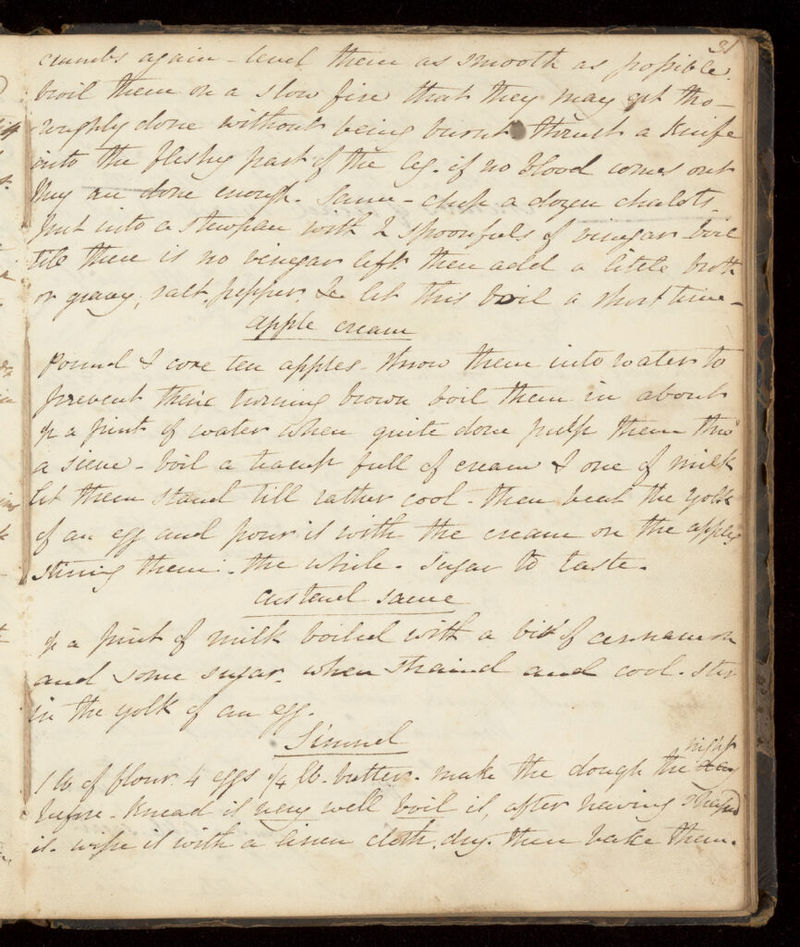 31
crumbs again - level them as smooth as possible.
broil them on a slow fire that they may get tho-
-roughly done without being burnt thrust a knife
into the fleshy part of the leg. if no blood comes out
they are done enough. Sauce - chop a dozen chalots
put into a stewpan with 2 spoonfuls of vinegar boil
till there is no vinegar left then add a little broth
or gravy, salt, pepper, &c let this boil a short time -
apple cream
& core ten apples. throw them into water to
prevent their turning brown boil them in about
a pint of water when quite done pulp them thro'
a sieve - boil a teacup full of cream & one of milk
let them stand till rather cool - then beat the yolk
of an egg and pour it with the cream on the apples
stiring them the while. Sugar to taste.
custard sauce
a pint of milk boiled with a bit of cinnamon
and some sugar. when straind and cool. stir
in the yolk of an egg.
Simnel
night
1 lb of flour 4 eggs 1/4 lb. butter. make the dough the day
before. knead it very well boil it, after having shaped
it. wipe it with a linen cloth. dry. then bake them.